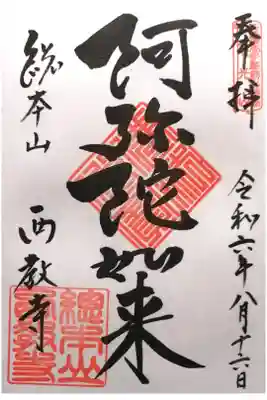 奉拝
令和六年八月十六日
阿弥陀如来
總本山
西教寺